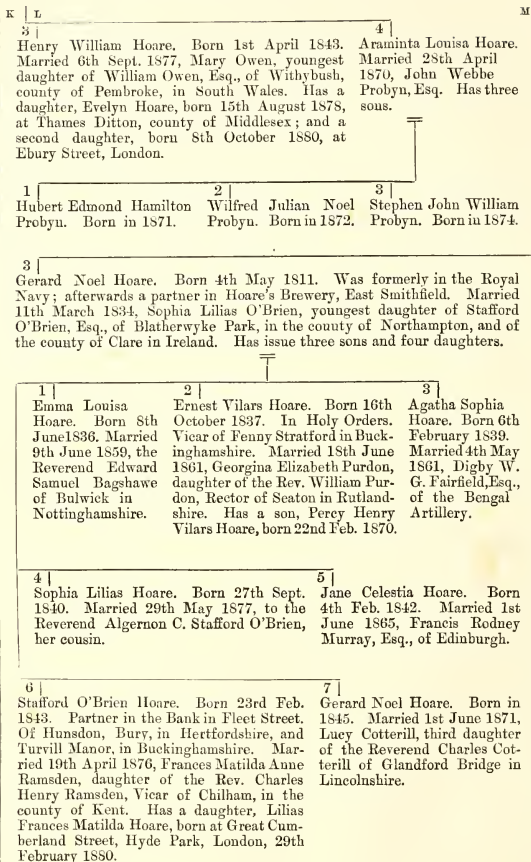 K | L M
3 |
Henry William Hoare. Born 1st April 1843.
Married 6th Sept. 1877, Mary Owen, youngest
daughter of William Owen, Esq., of Withybush,
county of Pembroke, in South Wales. Has a
daughter, Evelyn Hoare, born 15th August 1878,
at Thames Ditton, county of Middlesex; and a
second daughter, born 8th October 1880, at
Ebury Street, London.
4 |
Araminta Louisa Hoare.
Married 28th April
1870, John Webbe
Probyn, Esq. Has three
sons.
1 |
Hubert Edmond Hamilton
Probyn. Born in 1871.
2 |
Wilfred Julian Noel
Probyn. Born in 1872.
3 |
Stephen John William
Probyn. Born in 1874.
3 |
Gerard Noel Hoare. Born 4th May 1811. Was formerly in the Royal
Navy; afterwards a partner in Hoare's Brewery, East Smithfield. Married
11th March 1834, Sophia Lilias O'Brien, youngest daughter of Stafford
O'Brien, Esq., of Blatherwyke Park, in the county of Northampton, and of
the county of Clare in Ireland. Has issue three sons and four daughters.
1 |
Emma Louisa
Hoare. Born 8th
June 1836. Married
9th June 1859, the
Reverend Edward
Samuel Bagshawe
of Bulwick in
Nottinghamshire.
2 |
Ernest Vilars Hoare. Born 16th
October 1837. In Holy Orders.
Vicar of Fenny Stratford in Buck-
inghamshire. Married 18th June
1861, Georgina Elizabeth Purdon,
daughter of the Rev. William Pur-
don, Rector of Seaton in Rutland-
shire. Has a son, Percy Henry
Vilars Hoare, born 22nd Feb. 1870.
3 |
Agatha Sophia
Hoare. Born 6th
February 1839.
Married 4th May
1861, Digby W.
G. Fairfield, Esq.,
of the Bengal
Artillery.
4 |
Sophia Lilias Hoare. Born 27th Sept.
1840. Married 29th May 1877, to the
Reverend Algernon C. Stafford O'Brien,
her cousin.
5 |
Jane Celestia Hoare. Born
4th Feb. 1842. Married 1st
June 1865, Francis Rodney
Murray, Esq., of Edinburgh.
6 |
Stafford O'Brien Hoare. Born 23rd Feb.
1843. Partner in the Bank in Fleet Street.
Of Hunsdon, Bury, in Hertfordshire, and
Turvill Manor, in Buckinghamshire. Mar-
ried 19th April 1876, Frances Matilda Anne
Ramsden, daughter of the Rev. Charles
Henry Ramsden, Vicar of Chilham, in the
county of Kent. Has a daughter, Lilias
Frances Matilda Hoare, born at Great Cum-
berland Street, Hyde Park, London, 29th
February 1880.
7 |
Gerard Noel Hoare. Born in
1845. Married 1st June 1871,
Lucy Cotterill, third daughter
of the Reverend Charles Cot-
terill of Glandford Bridge in
Lincolnshire.